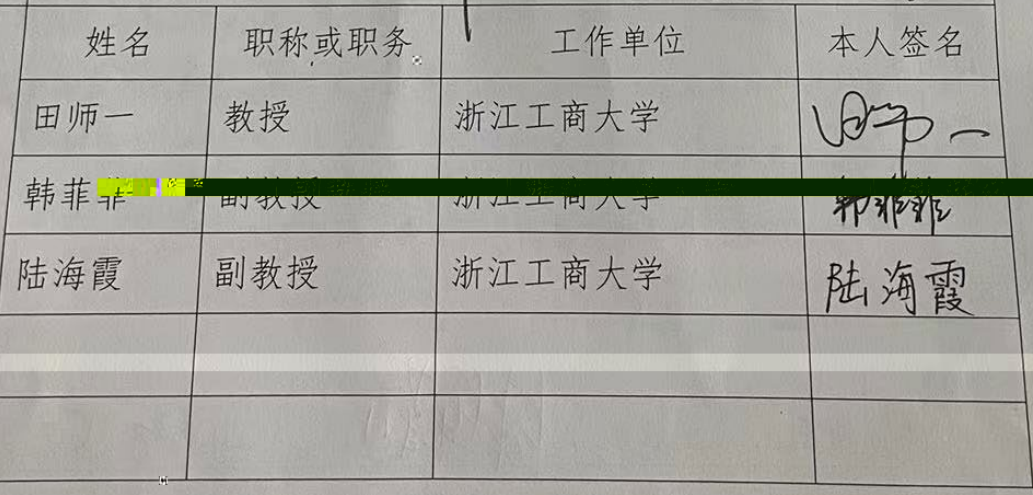 姓名 职称或职务 工作单位 本人签名
田师一 教授 浙江工商大学 田师一
韩菲菲 副教授 浙江工商大学 韩菲菲
陆海霞 副教授 浙江工商大学 陆海霞